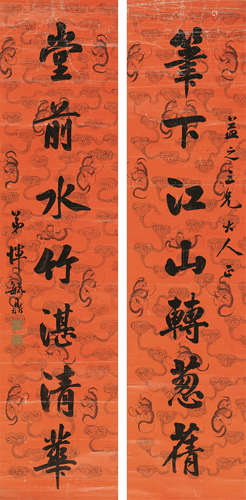 筆下江山轉蔥蒨
益之三兄大人正
堂前水竹湛清華
弟惲毓鼎